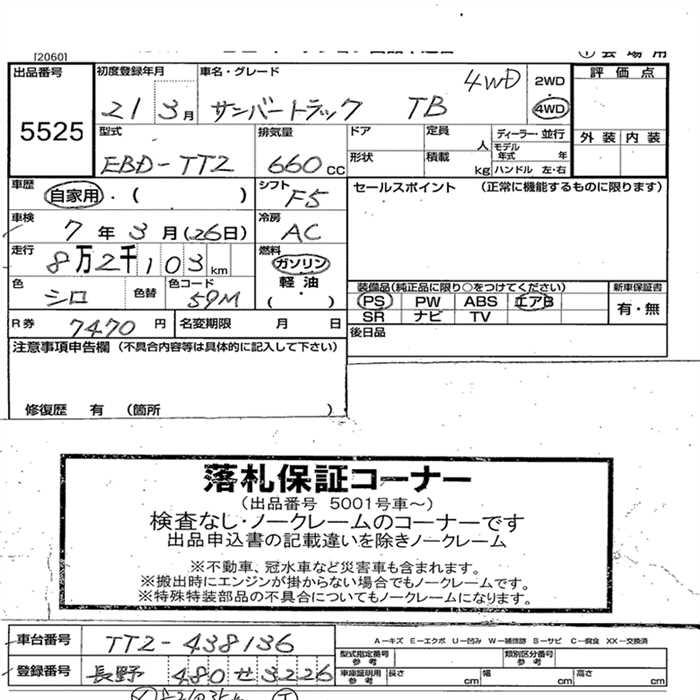 [2060]
会場用
出品番号 5525
初度登録年月 21 3月
車名・グレード サンバートラック TB 4WD
2WD
4WD
評価点
外装 内装
型式 EBD-TT2
排気量 660cc
ドア
形状
定員 人
積載 kg
ディーラー・並行
モデル年式 年
ハンドル 左・右
車歴 自家用・( )
シフト F5
セールスポイント (正常に機能するものに限ります)
車検 7年3月(26日)
冷房 AC
走行 8万2千103km
燃料 ガソリン
軽油
( )
色 シロ 色替
色コード 59M
装備品(純正品に限り○をつけてください)
PS PW ABS エアB
SR ナビ TV
新車保証書
有・無
R券 7470円
名変期限 月 日
後日品
注意事項申告欄(不具合内容等は具体的に記入して下さい)
修復歴 有 (箇所 )
落札保証コーナー
(出品番号 5001号車~)
検査なし・ノークレームのコーナーです
出品申込書の記載違いを除きノークレーム
※不動車、冠水車など災害車も含まれます。
※搬出時にエンジンが掛からない場合でもノークレームです。
※特殊特装部品の不具合についてもノークレームになります。
車台番号 TT2-438136
A-キズ E-エクボ U-凹み W-補修跡 S-サビ C-腐食 XX-交換済
型式指定番号 参考
類別区分番号 参考
登録番号 長野 480 せ 3226
車庫証明用 参考
長さ cm 幅 cm 高さ cm